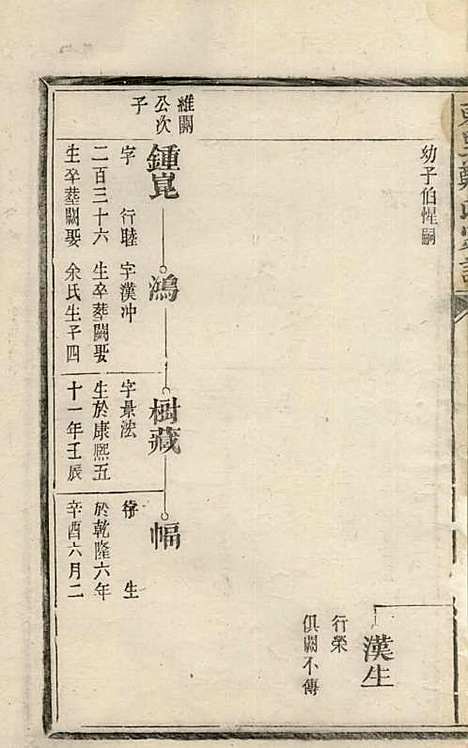 幼子伯惺嗣
漢生
行榮
俱闕不傳
維關
公次
子
鍾崑
字 行睦
二百三十六
生卒葬闕娶
鴻
字漢冲
生卒葬闕娶
余氏生子四
樹藏
字景法
生於康熙五
十一年壬辰
幅
行 生
於乾隆六年
辛酉六月二